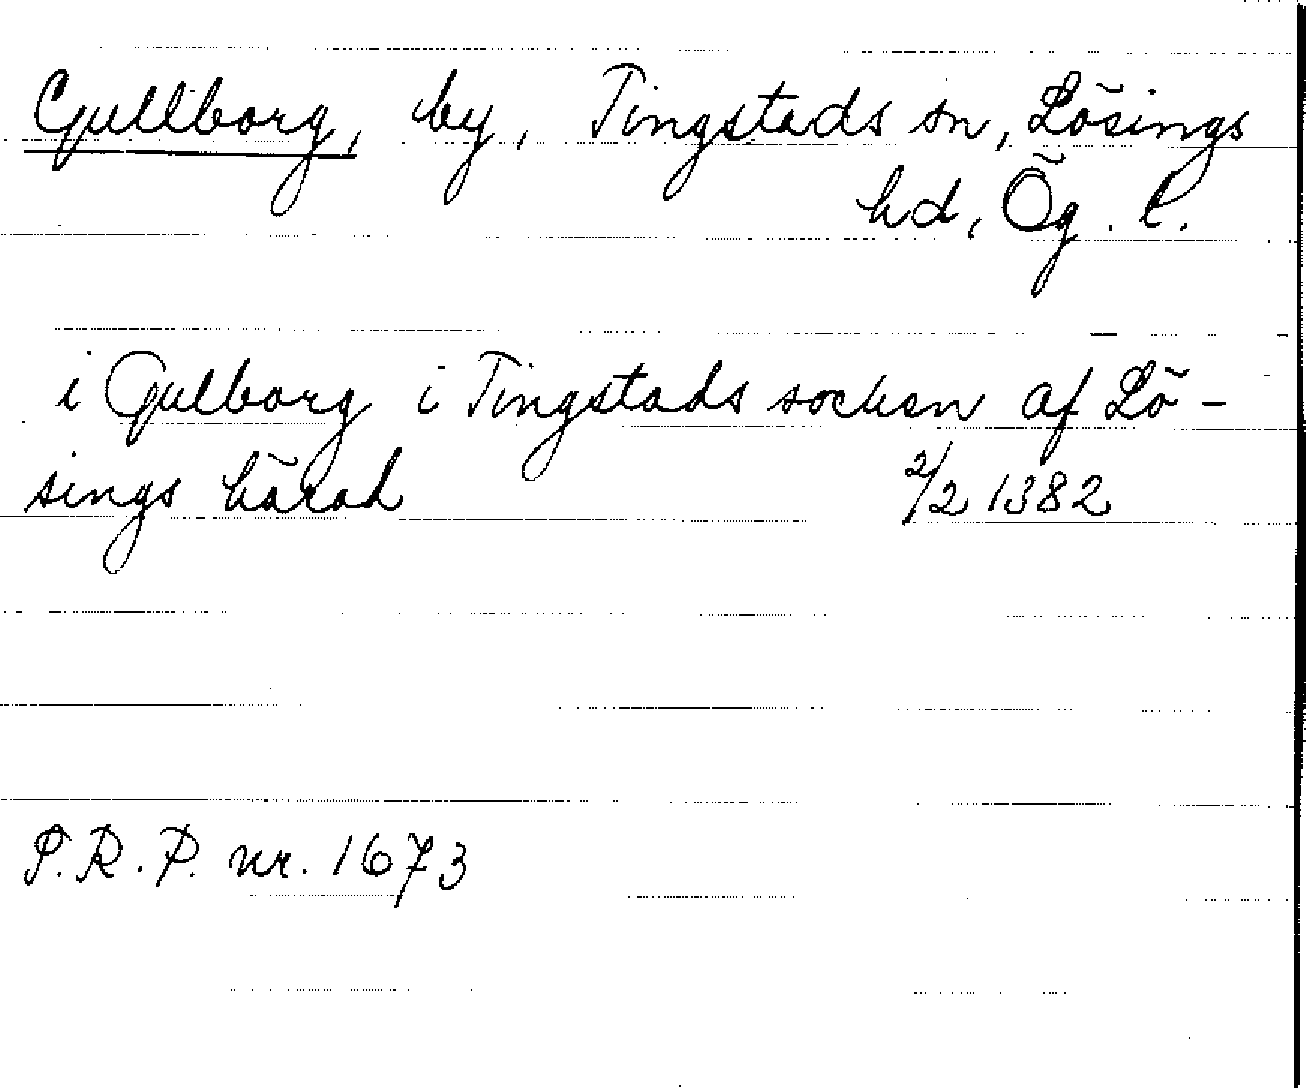 Gullborg, by, Tingstads sn, Lösings
hd, Ög. l.
i Gulborg i Tingstads socken af Lö-
sings härad 2/2 1382
P.R.P. nr. 1673